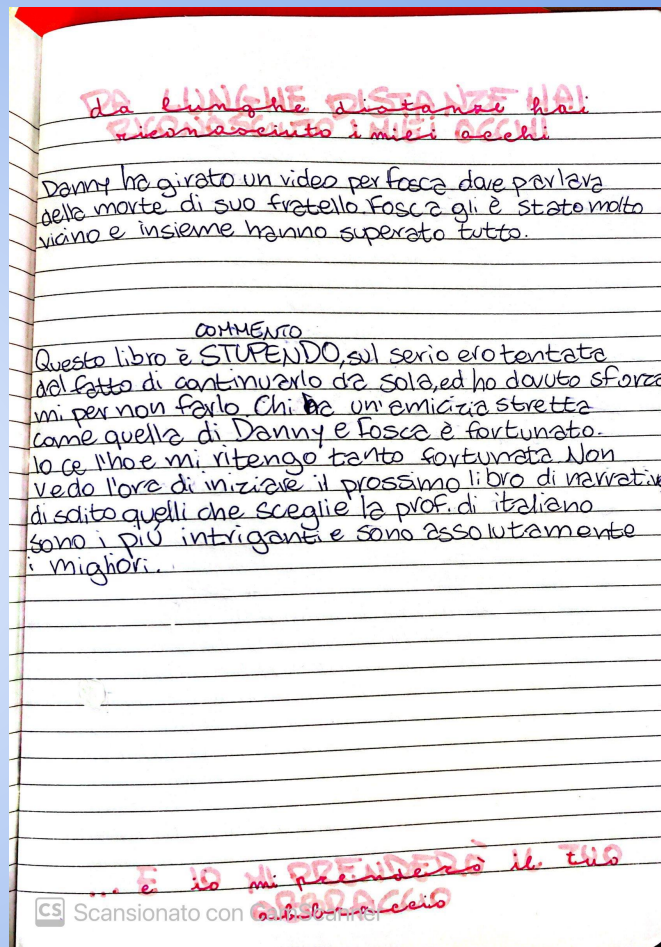 da lunghe distanze hai
riconosciuto i miei occhi
Danny ha girato un video per fosca dove parlava
della morte di suo fratello. Fosca gli è stato molto
vicino e insieme hanno superato tutto.
COMMENTO
Questo libro è STUPENDO, sul serio ero tentata
dal fatto di continuarlo da sola, ed ho dovuto sforza
mi per non farlo. Chi ha un'amicizia stretta
come quella di Danny e Fosca è fortunato.
Io ce l'ho e mi ritengo tanto fortunata. Non
vedo l'ora di iniziare il prossimo libro di narrativa
di solito quelli che sceglie la prof. di italiano
sono i più intriganti e sono assolutamente
i migliori.
... e io mi prenderò il tuo
abbraccio
CS Scansionato con CamScanner